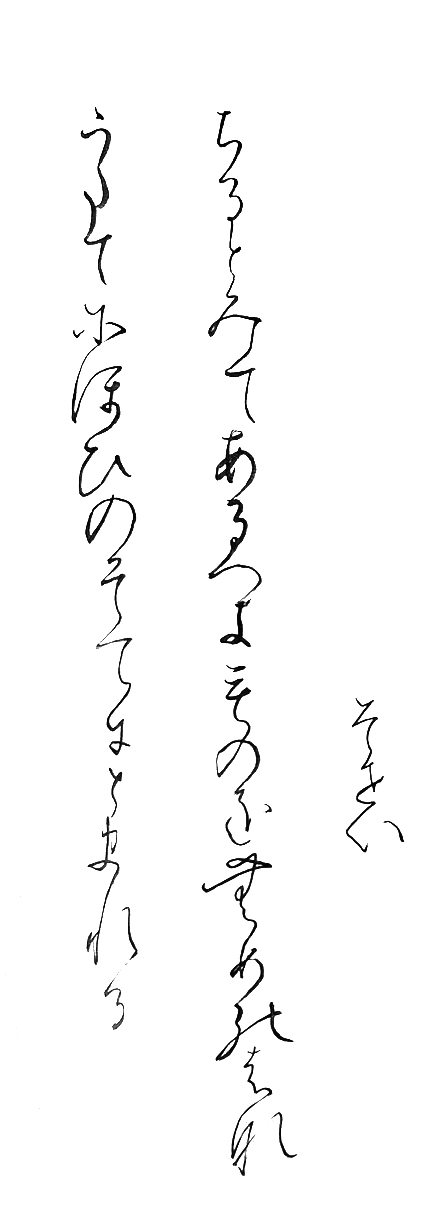 そせい
ちるとみてあるへきものをむめのはな
うたてにほひのそてにとまれる